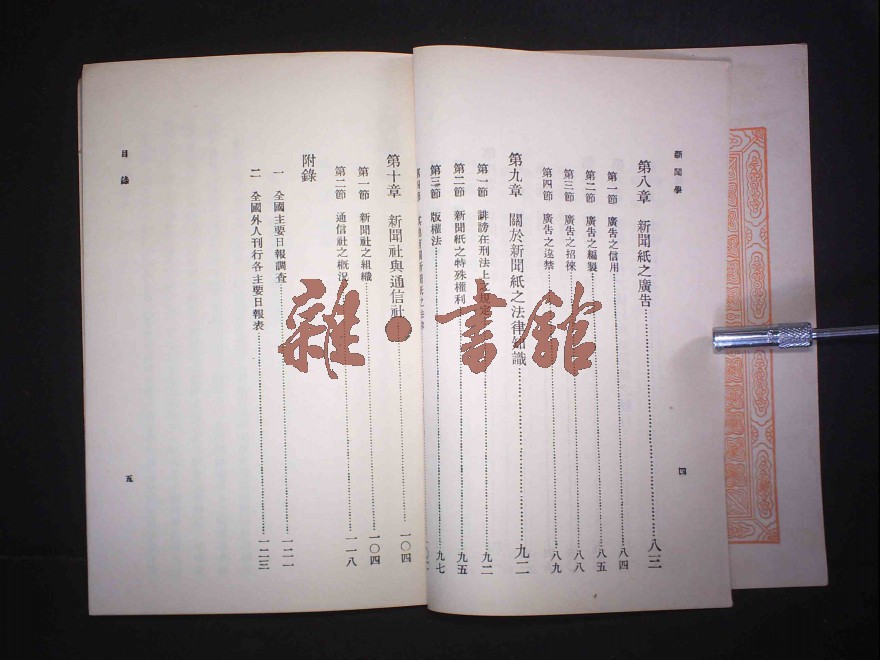 新聞學
第八章 新聞紙之廣告……八三
第一節 廣告之信用……八四
第二節 廣告之編製……八五
第三節 廣告之招徠……八八
第四節 廣告之……八九
第九章 關於新聞紙之法律知識……九二
第一節 誹謗在刑法上之規定……九二
第二節 新聞紙之特殊權利……九五
第三節 版權法……九七
四
第十章 新聞社與通信社……一〇四
第一節 新聞社之組織……一〇四
第二節 通信社之概況……一一八
附錄
一 全國主要日報調查……一二一
二 全國外人刊行各主要日報表……一二三
目錄
五
雜·書館